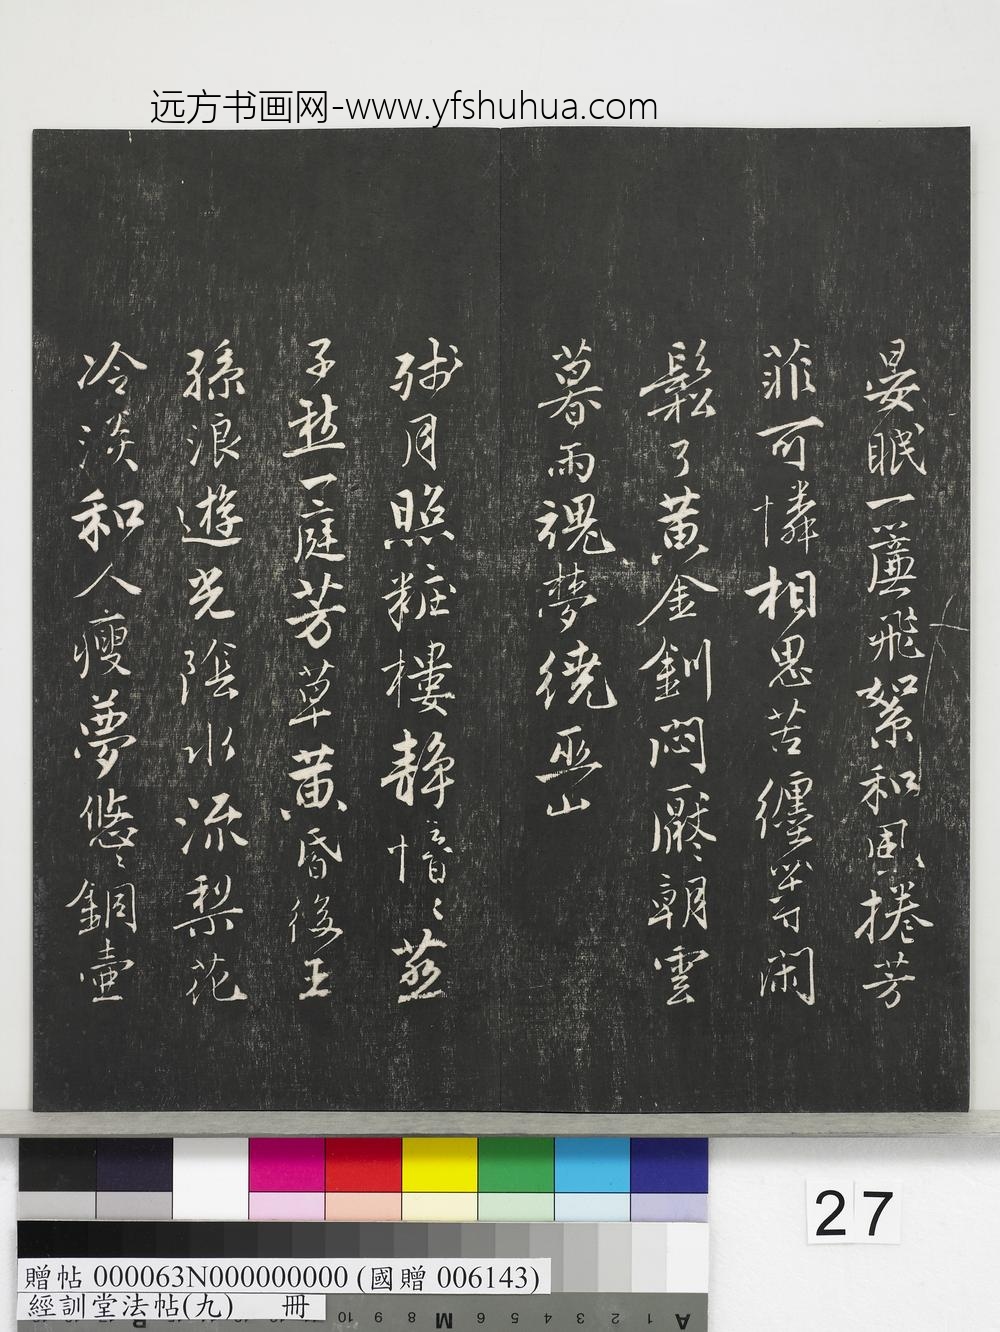 远方书画网-www.yfshuhua.com
晏眠一簾飛絮和風捲芳
菲可憐相思苦纏等閑
鬆了黃金釧悶厭朝雲
暮雨魂夢繞巫山
殘月照粧樓靜愔〻燕
子愁一庭芳草黃昏後王
孫浪遊光陰水流梨花
冷淡和人瘦夢悠〻銅壷
27
贈帖 000063N000000000 (國贈 006143)
經訓堂法帖(九) 冊